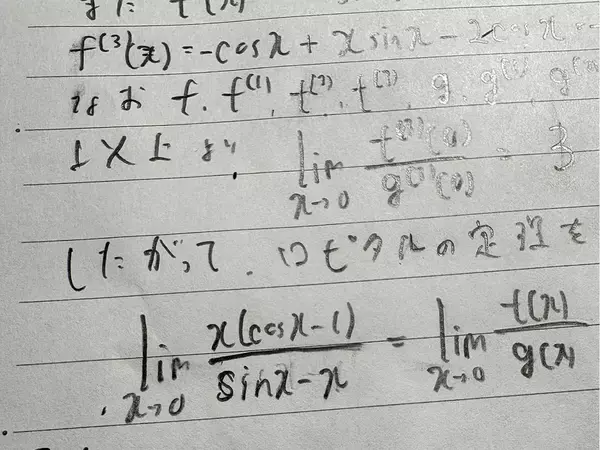 f⁽³⁾(x) = -cosx + xsinx - 2cosx
なお f, f⁽¹⁾, f⁽²⁾, f⁽³⁾, g, g⁽¹⁾, g
以上より, lim x→0 f⁽³⁾(x) / g⁽³⁾(x) = 3
したがって, ロピタルの定理を
lim x→0 x(cosx-1) / sinx-x = lim x→0 f(x) / g(x)